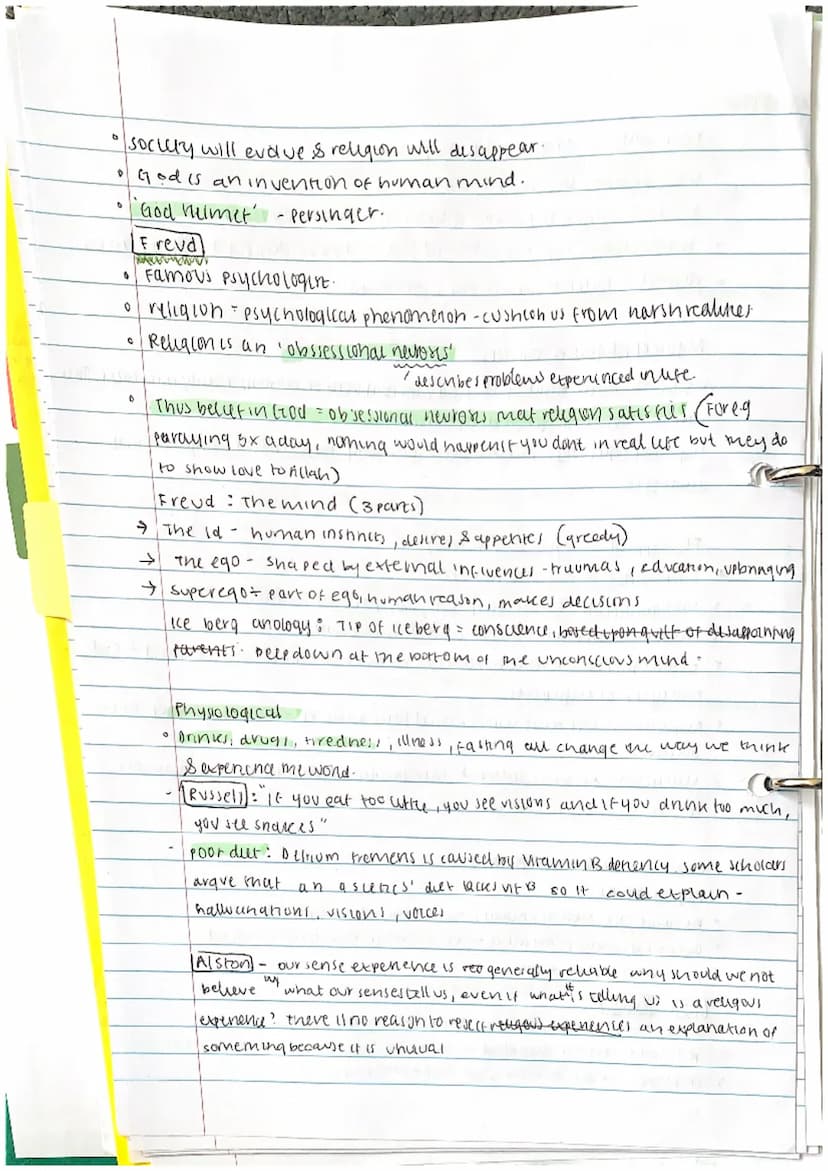 • society will evolve & religion will disappear.
• God is an invention of human mind.
• 'God helmet' - Persinger.
Freud
• Famous psychologist.
• religion = psychological phenomenon - cushion us from harsh realities
• Religion is an 'obssessional neurosis'
describes problems experienced in life.
• Thus belief in God = obsessional neuroses that religion satisfies (For eg
praying 5x a day, nothing would happen if you dont in real life but they do
to show love to Allah)
Freud : The mind (3 parts)
→ The Id - human instincts, desires & appetites (greedy)
→ The ego - shaped by external influences - traumas, education, upbringing
→ Superego = part of ego, human reason, makes decisions
Ice berg anology : Tip of iceberg = conscience, based upon guilt of disappointing
parents. Deep down at the bottom of the unconscious mind.
Physiological
• Drinks, drugs, tiredness, illness, fasting all change the way we think
& experience the world.
- Russell : "If you eat too little, you see visions and if you drink too much,
you see snakes"
- poor diet : Delirium tremens is caused by vitamin B deficiency some scholars
argue that an ascetics' diet lacks vit B so it could explain -
hallucinations, visions, voices
Alston - our sense experience is generally reliable why should we not
believe in what our senses tell us, even if what it is telling us is a religous
experience? there is no reason to reject religous experiences an explanation of
something because it is unusual